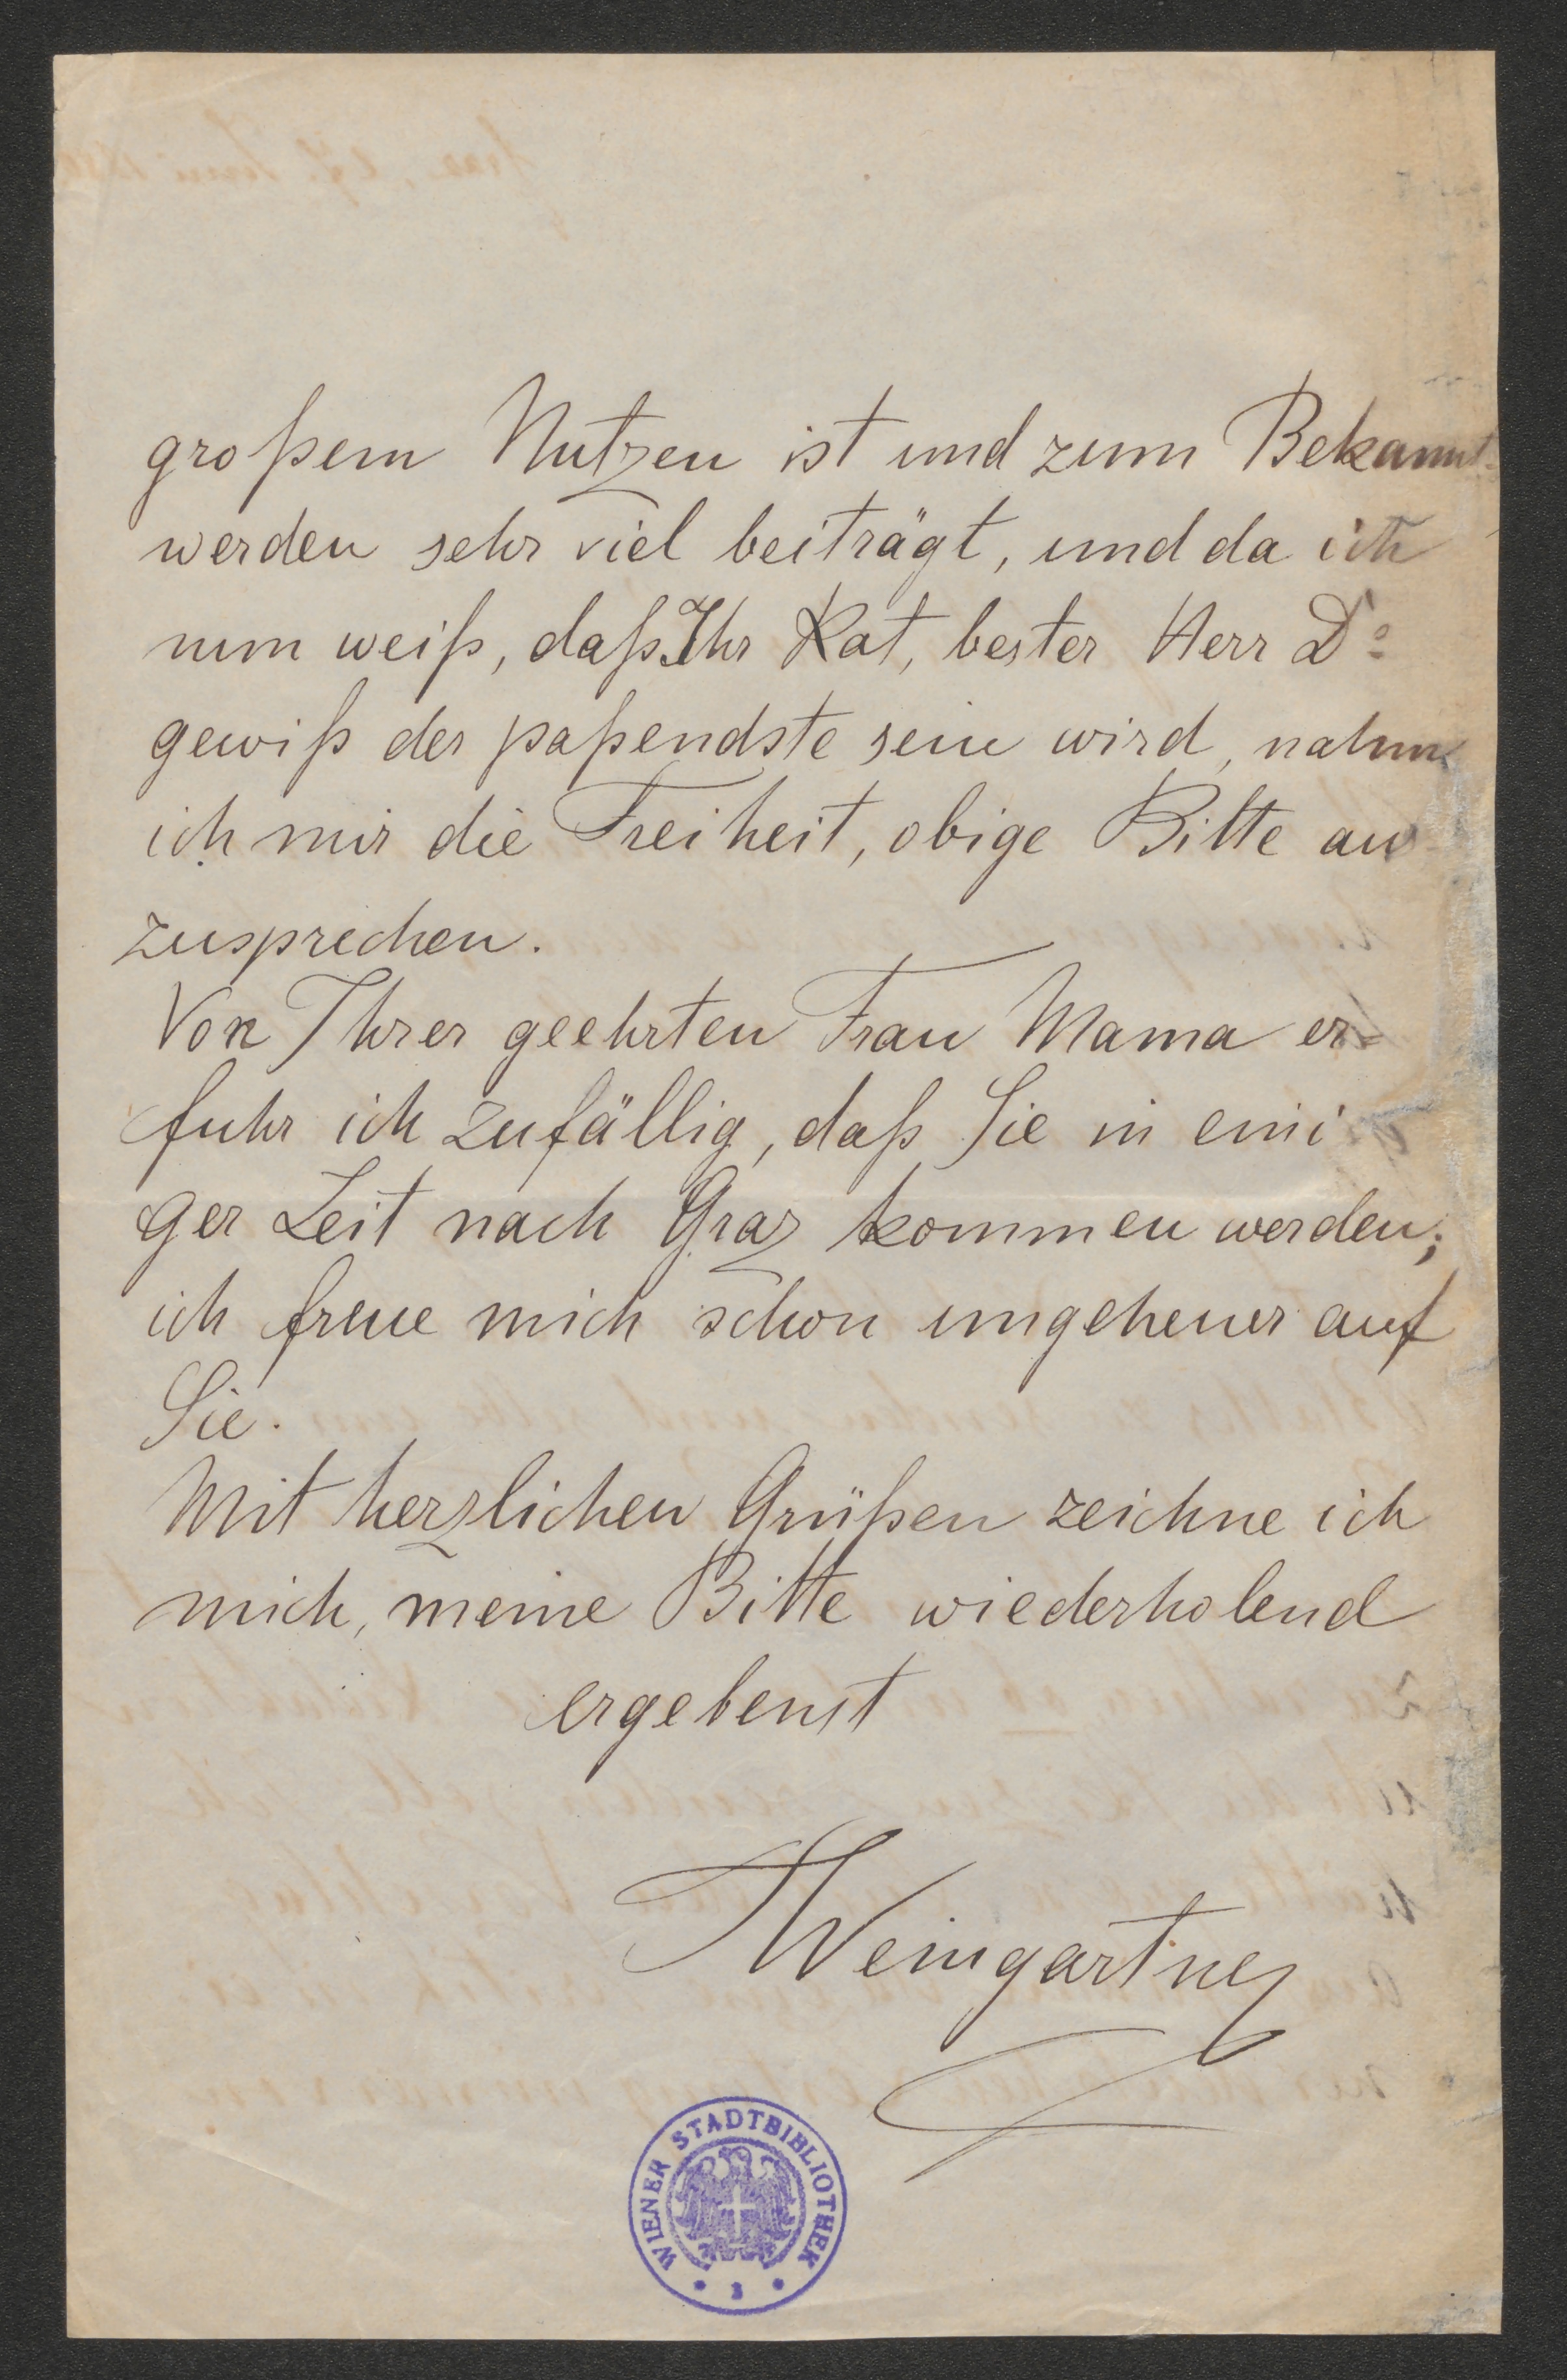 großem Nutzen ist und zum Bekannt-
werden sehr viel beiträgt, und da ich
nun weiß, daß Ihr Rat, bester Herr Dr
gewiß der paßendste sein wird, nahm
ich mir die Freiheit, obige Bitte aus
zusprechen.
Von Ihrer geehrten Frau Mama er=
fuhr ich zufällig, daß Sie in eini
ger Zeit nach Graz kommen werden;
ich freue mich schon ungeheuer auf
Sie.
Mit herzlichen Grüßen zeichne ich
mich, meine Bitte wiederholend
ergebenst
Weingartner
WIENER STADTBIBLIOTHEK
3